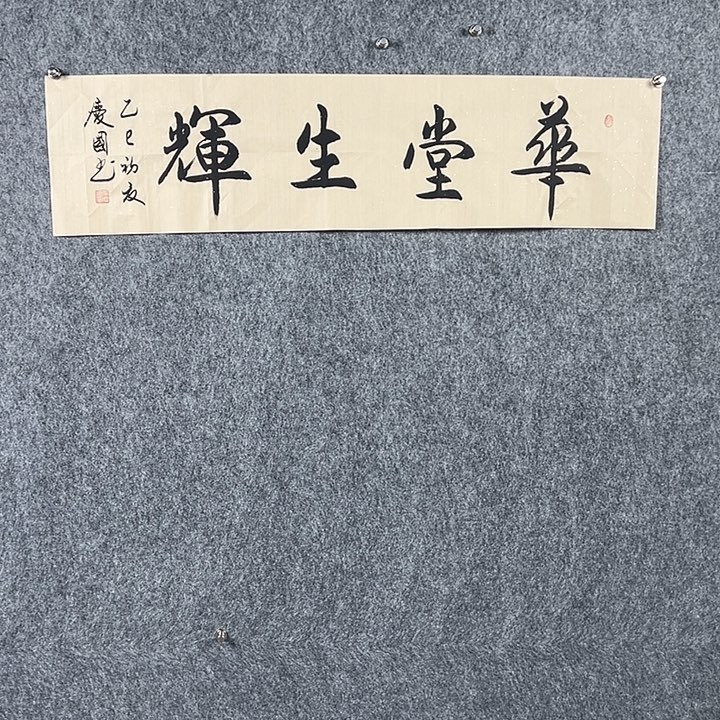 華堂生輝
乙巳初夏
慶國书